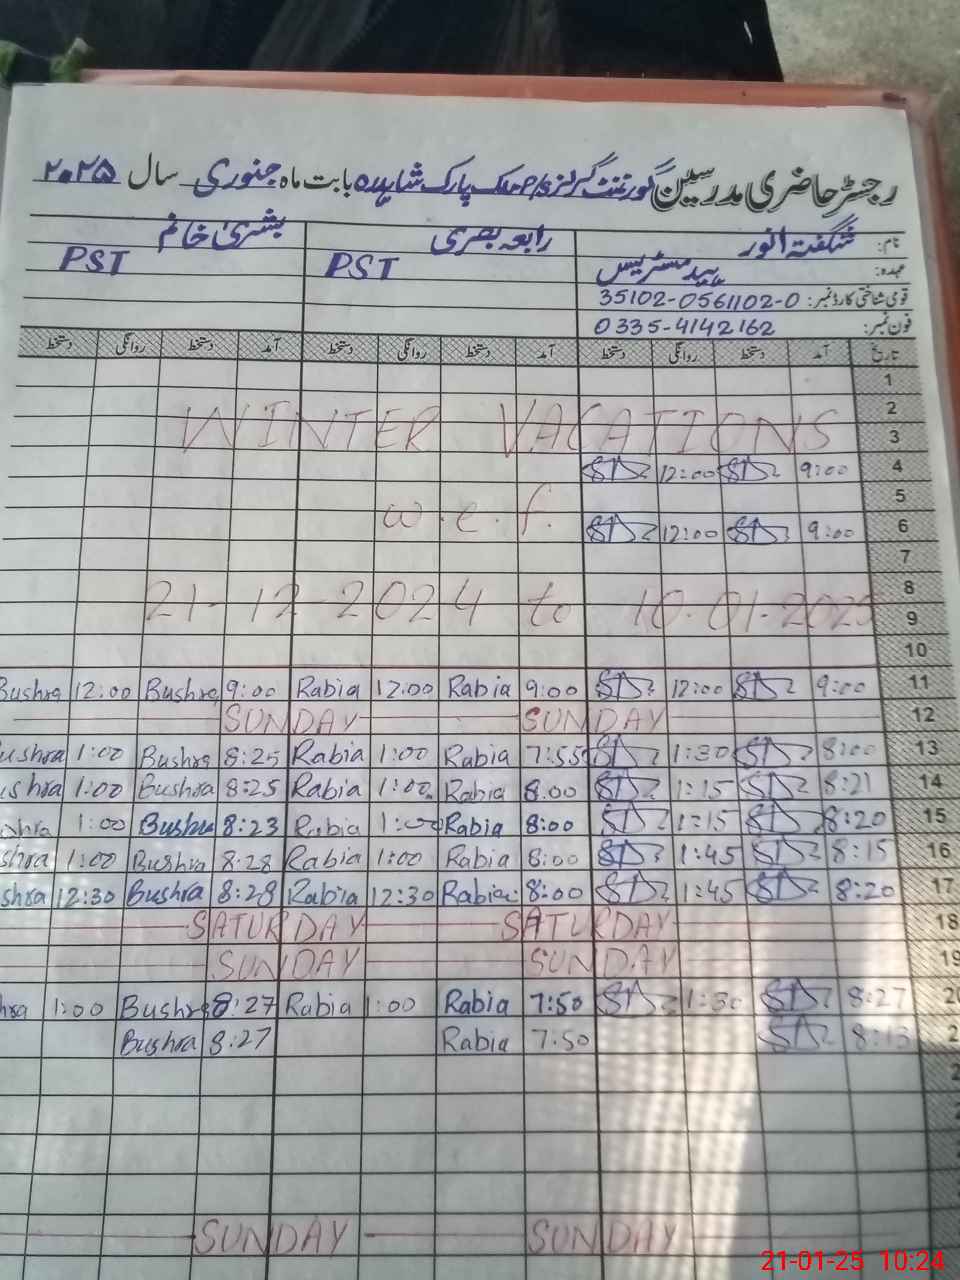 رجسٹر حاضری مدرسین گورنمنٹ گرلز P/S ملک پارک شاہدہ بابت ماہ جنوری سال ۲۰۲۵
نام: شگفتہ انور رابعہ بصری بشریٰ خانم
عہدہ: ہیڈ مسٹریس PST PST
قومی شناختی کارڈ نمبر: 35102-0561102-0
فون نمبر: 0335-4142162
تاریخ آمد دستخط روانگی دستخط آمد دستخط روانگی دستخط آمد دستخط روانگی دستخط
1
2
WINTER VACATIONS 3
12:00 9:00 4
5
w.e.f. 12:00 9:00 6
7
8
21-12-2024 to 10-01-2025 9
10
Bushra 12:00 Bushra 9:00 Rabia 12:00 Rabia 9:00 12:00 9:00 11
SUNDAY SUNDAY 12
ushra 1:00 Bushra 8:25 Rabia 1:00 Rabia 7:55 1:30 8:00 13
shra 1:00 Bushra 8:25 Rabia 1:00 Rabia 8:00 1:15 8:21 14
shra 1:00 Bushra 8:23 Rabia 1:00 Rabia 8:00 1:15 8:20 15
shra 1:00 Bushra 8:28 Rabia 1:00 Rabia 8:00 1:45 8:15 16
shra 12:30 Bushra 8:28 Rabia 12:30 Rabia 8:00 1:45 8:20 17
SATURDAY SATURDAY 18
SUNDAY SUNDAY 19
hra 1:00 Bushra 8:27 Rabia 1:00 Rabia 7:50 1:30 8:27 20
Bushra 8:27 Rabia 7:50 8:13 2
SUNDAY SUNDAY
21-01-25 10:24